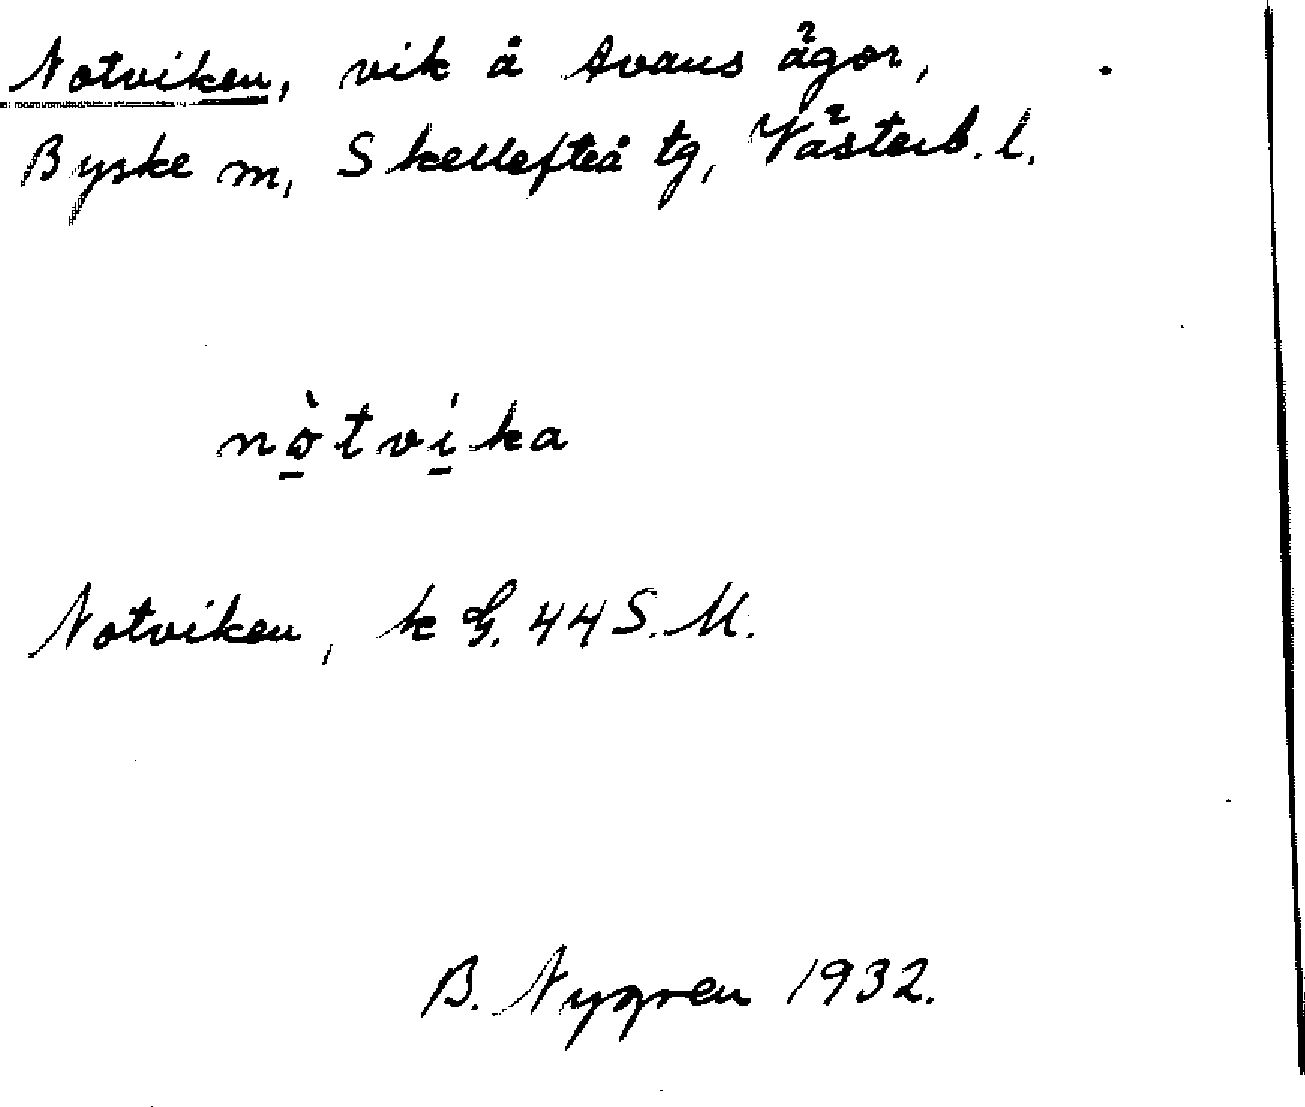 Notviken, vik å Avans ägor,
Byske m, Skellefteå tg, Västerb. l.
nò̱tví̱ka
Notviken, k G. 44 S. M.
B. Nygren 1932.